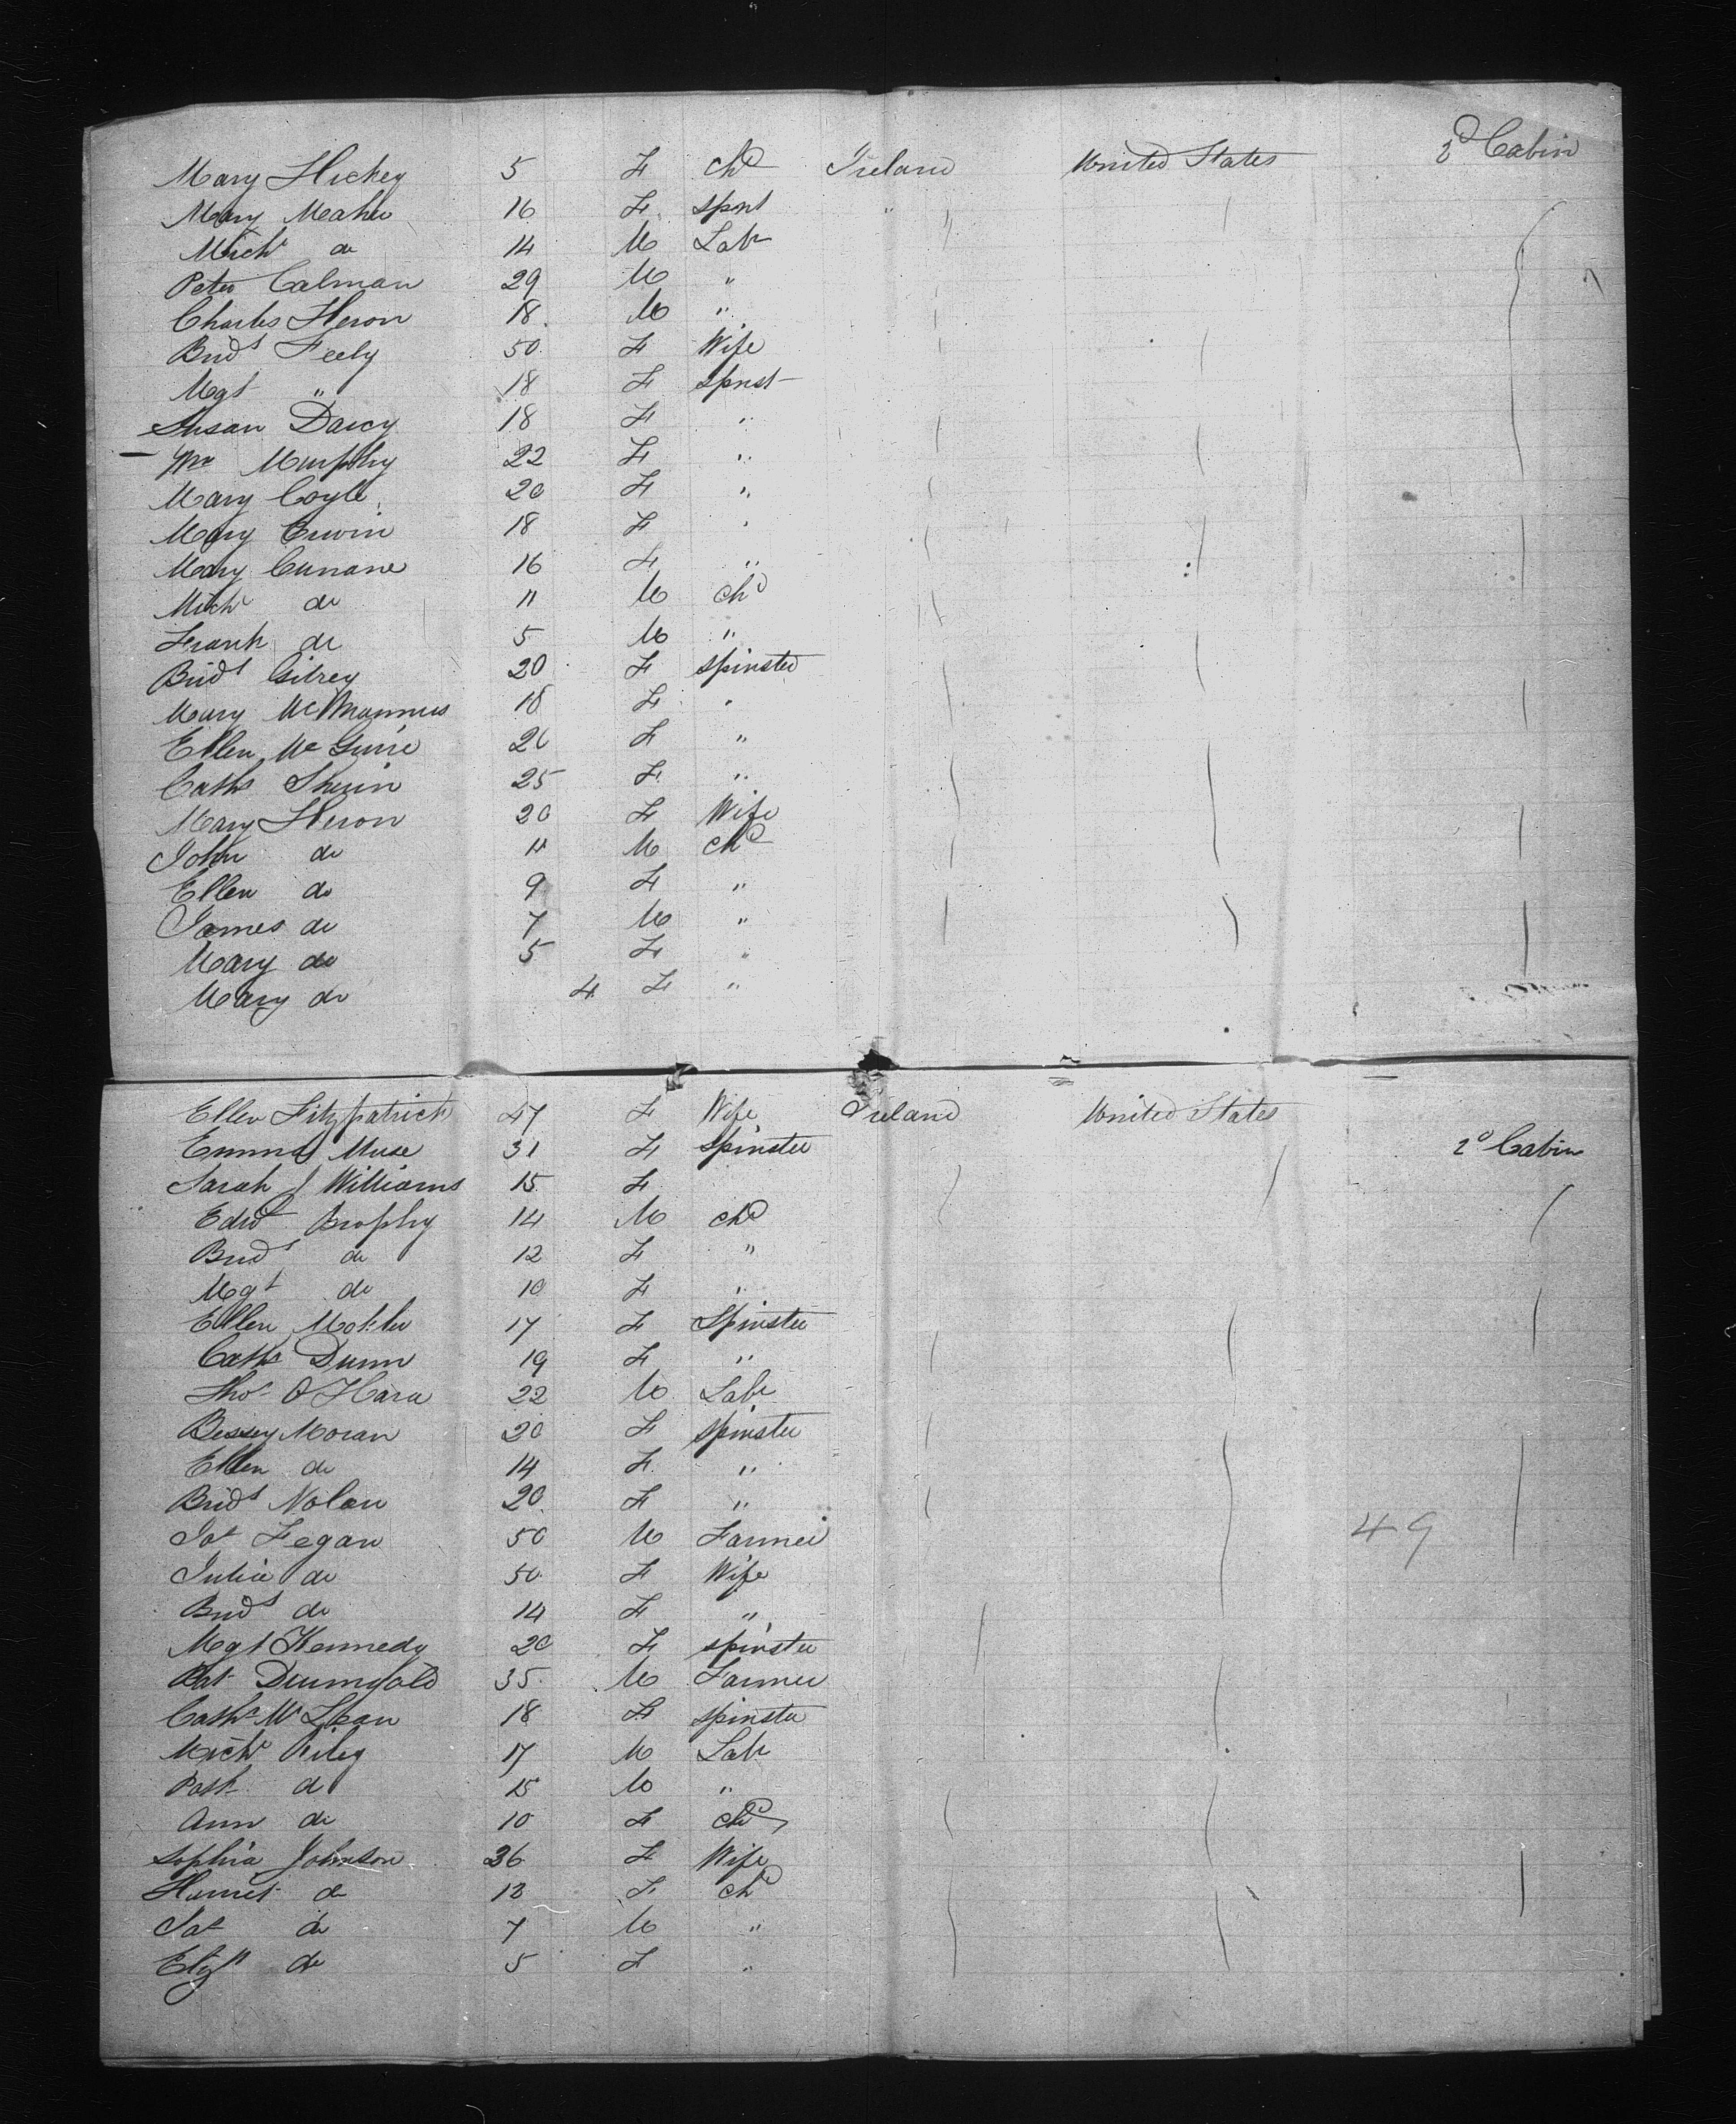 Mary Hickey 5 F Chd Ireland United States 2d Cabin
Mary Maher 16 F Spnt "
Michl do 14 M Labr
Peter Calman 29 M "
Charles Heron 18 M "
Bridt Feely 50 F Wife
Mgt " 18 F Spnst
Susan Darcy 18 F "
Murphy 22 F "
Mary Coyle 20 F "
Mary Erwin 18 F "
Mary Cunane 16 F "
Michl do 11 M Chd
Frank do 5 M "
Bridt Gilrey 20 F Spinster
Mary McMannus 18 F "
Ellen McGuire 20 F "
Cath Sherin 25 F "
Mary Heron 20 F Wife
John do 11 M Chd
Ellen do 9 F "
James do 7 M "
Mary do 5 F "
Mary do 4 F "
Ellen Fitzpatrick 47 F Wife Ireland United States
Emma Muse 31 F Spinster 2d Cabin
Sarah J Williams 15 F
Edwd Brophy 14 M Chd
Bridt do 12 F "
Mgt do 10 F "
Ellen 17 F Spinster
Cath Dunn 19 F "
Thos O'Hara 22 M Labr
Bessey Moran 20 F Spinster
Ellen do 14 F "
Bridt Nolan 20 F "
Jas Fegan 50 M Farmer 49
Julia do 50 F Wife
Bridt do 14 F "
Mgt Kennedy 20 F Spinster
Pat Drumgold 35 M Farmer
Cath McLean 18 F Spinster
Michl Riley 17 M Labr
Patk do 15 M "
Ann do 10 F Chd
Sophia Johnson 36 F Wife
do 13 F Chd
Jas do 7 M "
Elizh do 5 F "